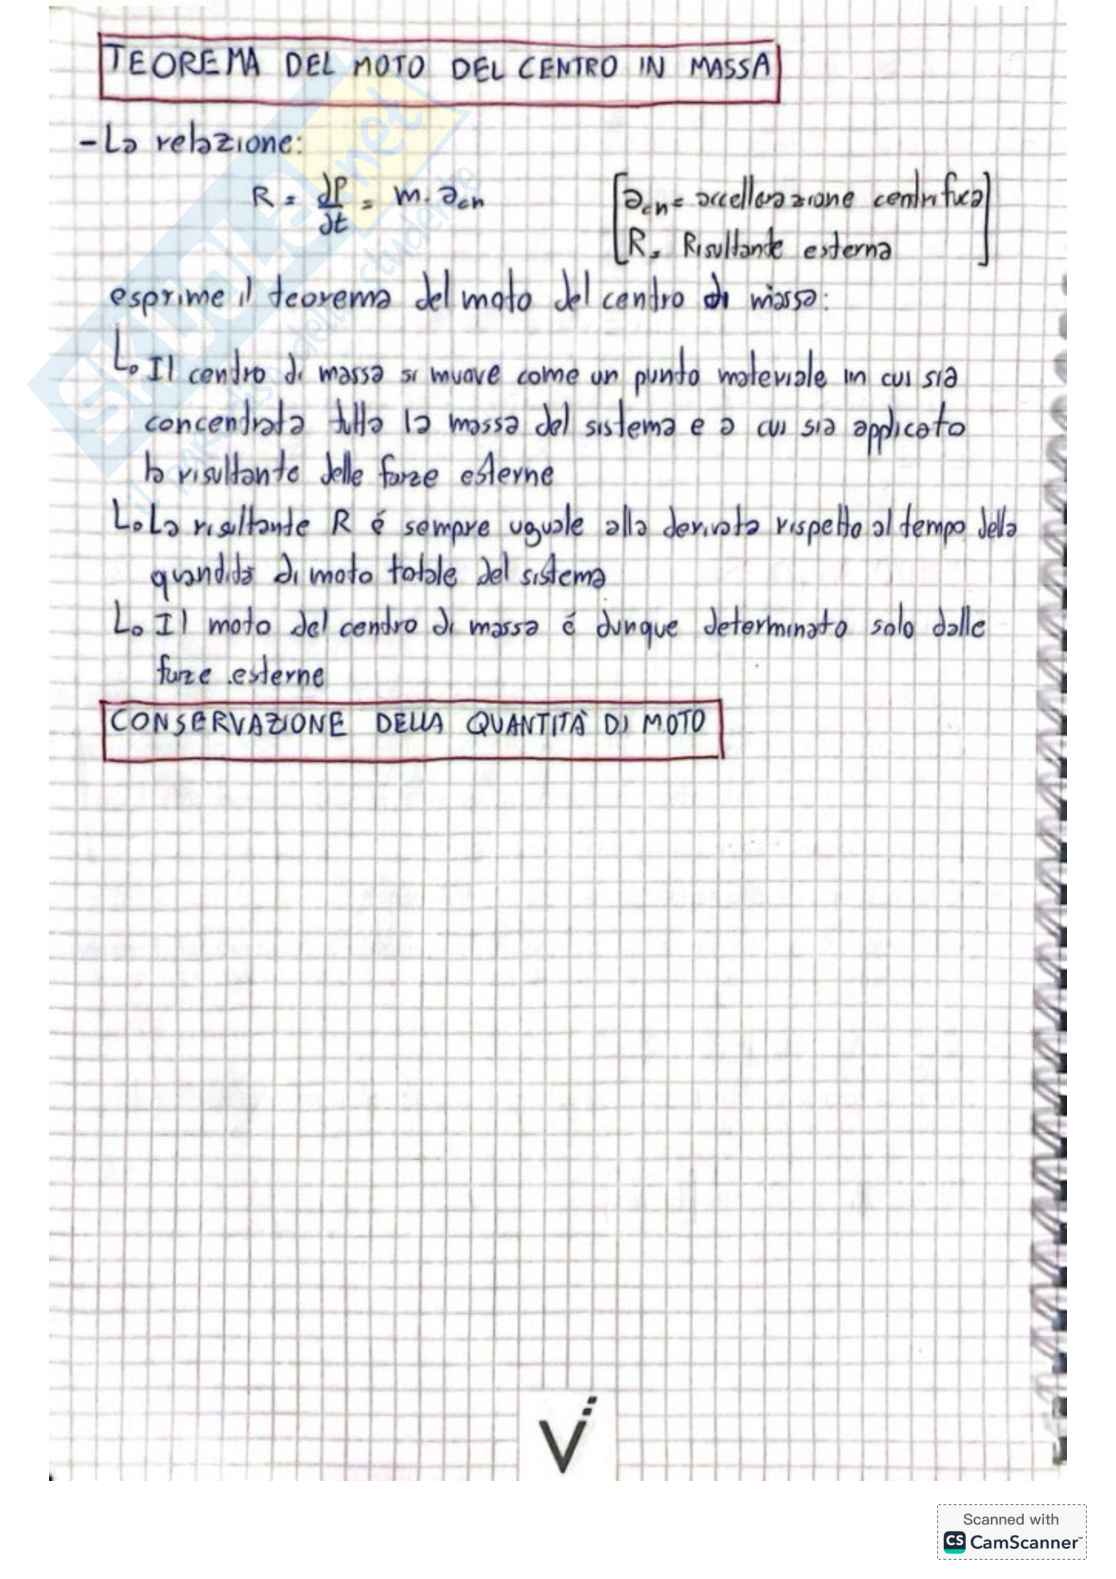 TEOREMA DEL MOTO DEL CENTRO IN MASSA
- La relazione:
R = dP/dt = m · a_cn [a_cn = accellerazione centrifuca
R = Risultante esterna]
esprime il teorema del moto del centro di massa:
Lo Il centro di massa si muove come un punto materiale in cui sia
concentrata tutta la massa del sistema e a cui sia applicato
la risultante delle forze esterne
Lo La risultante R é sempre uguale alla derivata rispetto al tempo della
quantità di moto totale del sistema
Lo Il moto del centro di massa é dunque determinato solo dalle
forze esterne
CONSERVAZIONE DELLA QUANTITÀ DI MOTO
SKUOLA.net
Scanned with
CS CamScanner